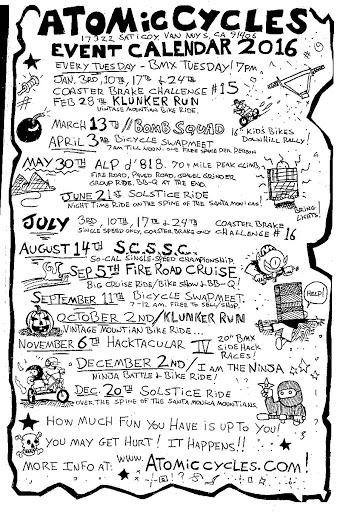 ATOMiC CYCLES
17322 SATICOY VAN NUYS, CA 91406
EVENT CALENDAR 2016
EVERY TUESDAY - BMX TUESDAY! 7PM.
JAN. 3RD, 10TH, 17TH + 24TH
COASTER BRAKE CHALLENGE #15
FEB 28TH KLUNKER RUN
VINTAGE MOUNTAIN BIKE RIDE.
MARCH 13TH // BOMB SQUAD
16" KID'S BIKES
DOWNHILL RALLY!
APRIL 3RD BICYCLE SWAPMEET
7AM TILL NOON. ONE FREE SPACE PER PERSON
MAY 30TH ALP D'818. 70+ MILE PEAK CLIMB,
FIRE ROAD, PAVED ROAD, GRAVEL GRINDER
GROUP RIDE, BB-Q AT THE END.
JUNE 21ST SOLSTICE RIDE
NIGHT TIME RIDE ON THE SPINE OF THE SANTA MONICAS!
BRING
LIGHTS.
JULY 3RD, 10TH, 17TH + 24TH COASTER BRAKE
SINGLE SPEED ONLY, COASTER BRAKE ONLY CHALLENGE #16
AUGUST 14TH S.C.S.S.C.
SO-CAL SINGLE-SPEED CHAMPIONSHIP.
SEP 5TH FIRE ROAD CRUISE!
BIG CRUISE RIDE/BIKE SHOW & BB-Q!
HELP!
SEPTEMBER 11TH BICYCLE SWAPMEET
7-12 A.M. FREE TO SELL/SWAP.
OCTOBER 2ND/KLUNKER RUN
VINTAGE MOUNTIAN BIKE RIDE...
NOVEMBER 6TH HACKTACULAR IV 20" BMX
SIDE HACK
RACES!
DECEMBER 2ND/I AM THE NINJA
NINJA BATTLE & BIKE RIDE!
DEC. 20TH SOLSTICE RIDE
OVER THE SPINE OF THE SANTA MONICA MOUNTIANS.
HOW MUCH FUN YOU HAVE IS UP TO YOU!
YOU MAY GET HURT! IT HAPPENS!!
MORE INFO AT: WWW. ATOMICCYCLES.COM!